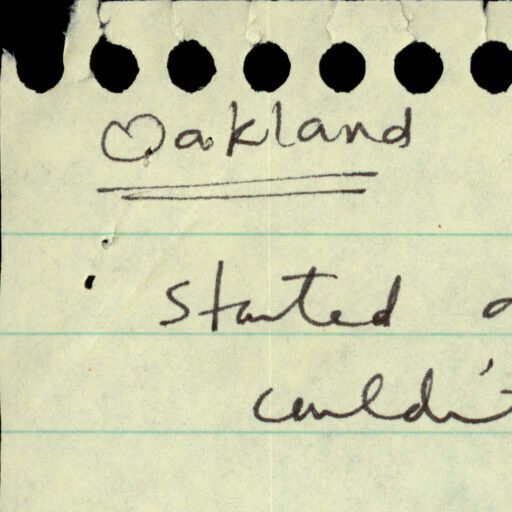 Oakland
Started
couldn't